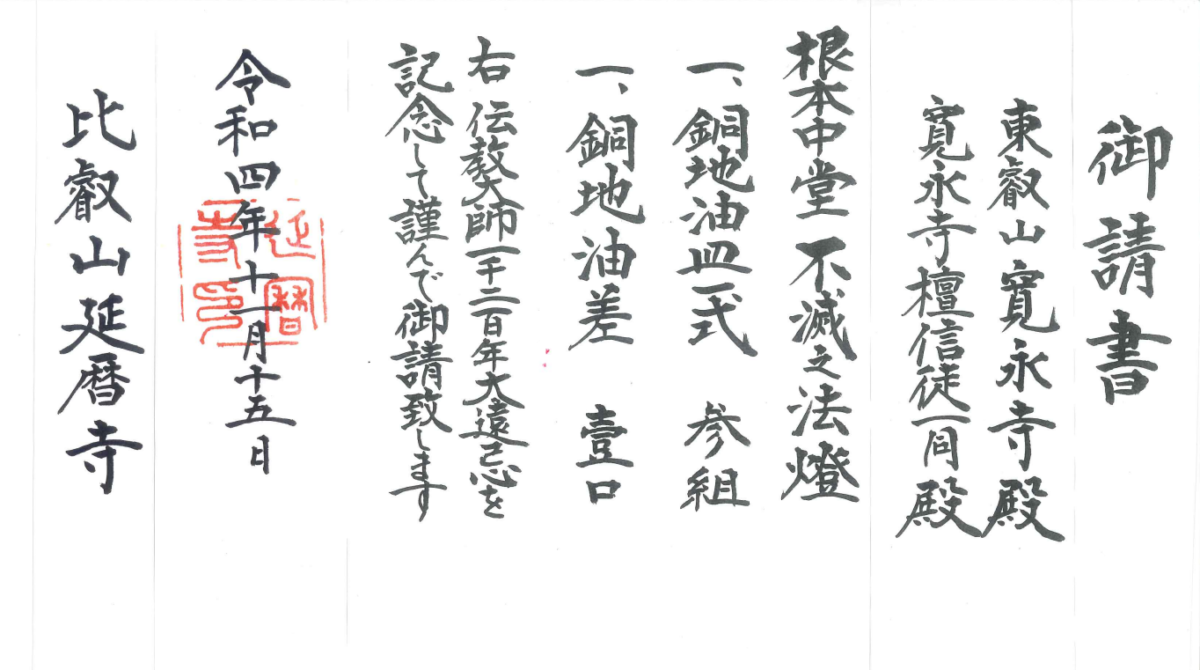 御請書
東叡山寛永寺殿
寛永寺檀信徒一同殿
根本中堂 不滅之法燈
一、銅地油皿一式 参組
一、銅地油差 壹口
右 伝教大師一千二百年大遠忌を
記念して謹んで御請致します
令和四年十一月十五日
延暦
寺印
比叡山延暦寺